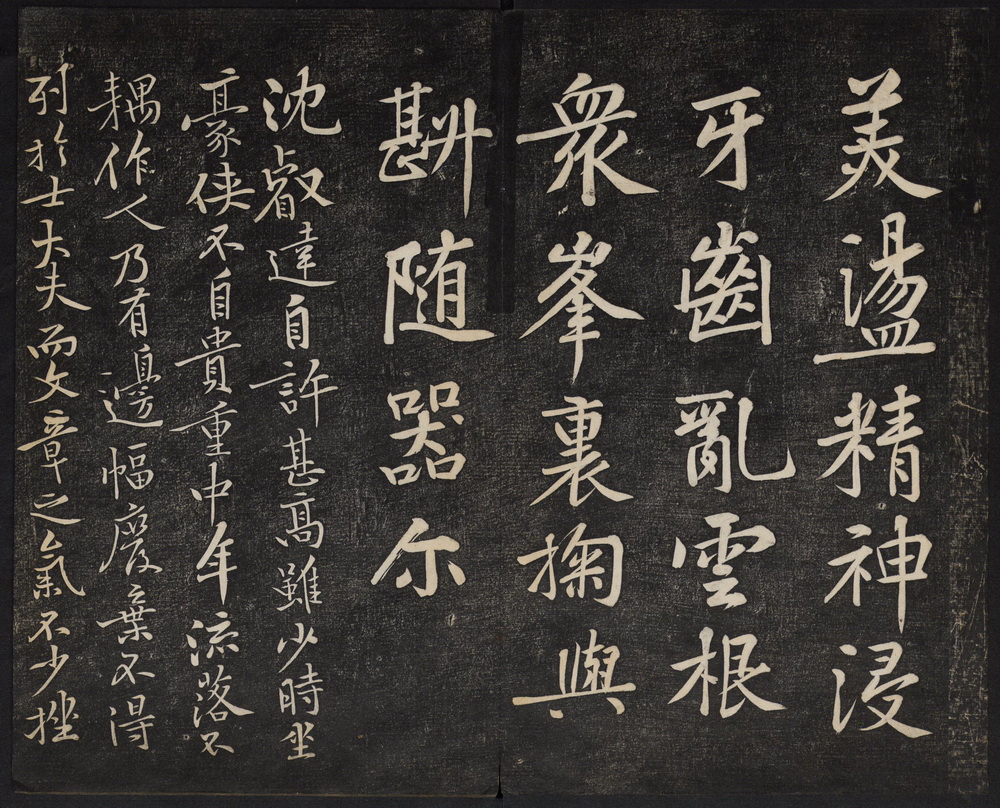 美盪精神浸
牙齒亂雲根
衆峯裏掬與
斟随器尔
沈叡達自許甚高雖少時坐
豪侠不自貴重中年流落不
耦作人乃有邊幅廢棄不得
列於士大夫而文章之氣不少挫